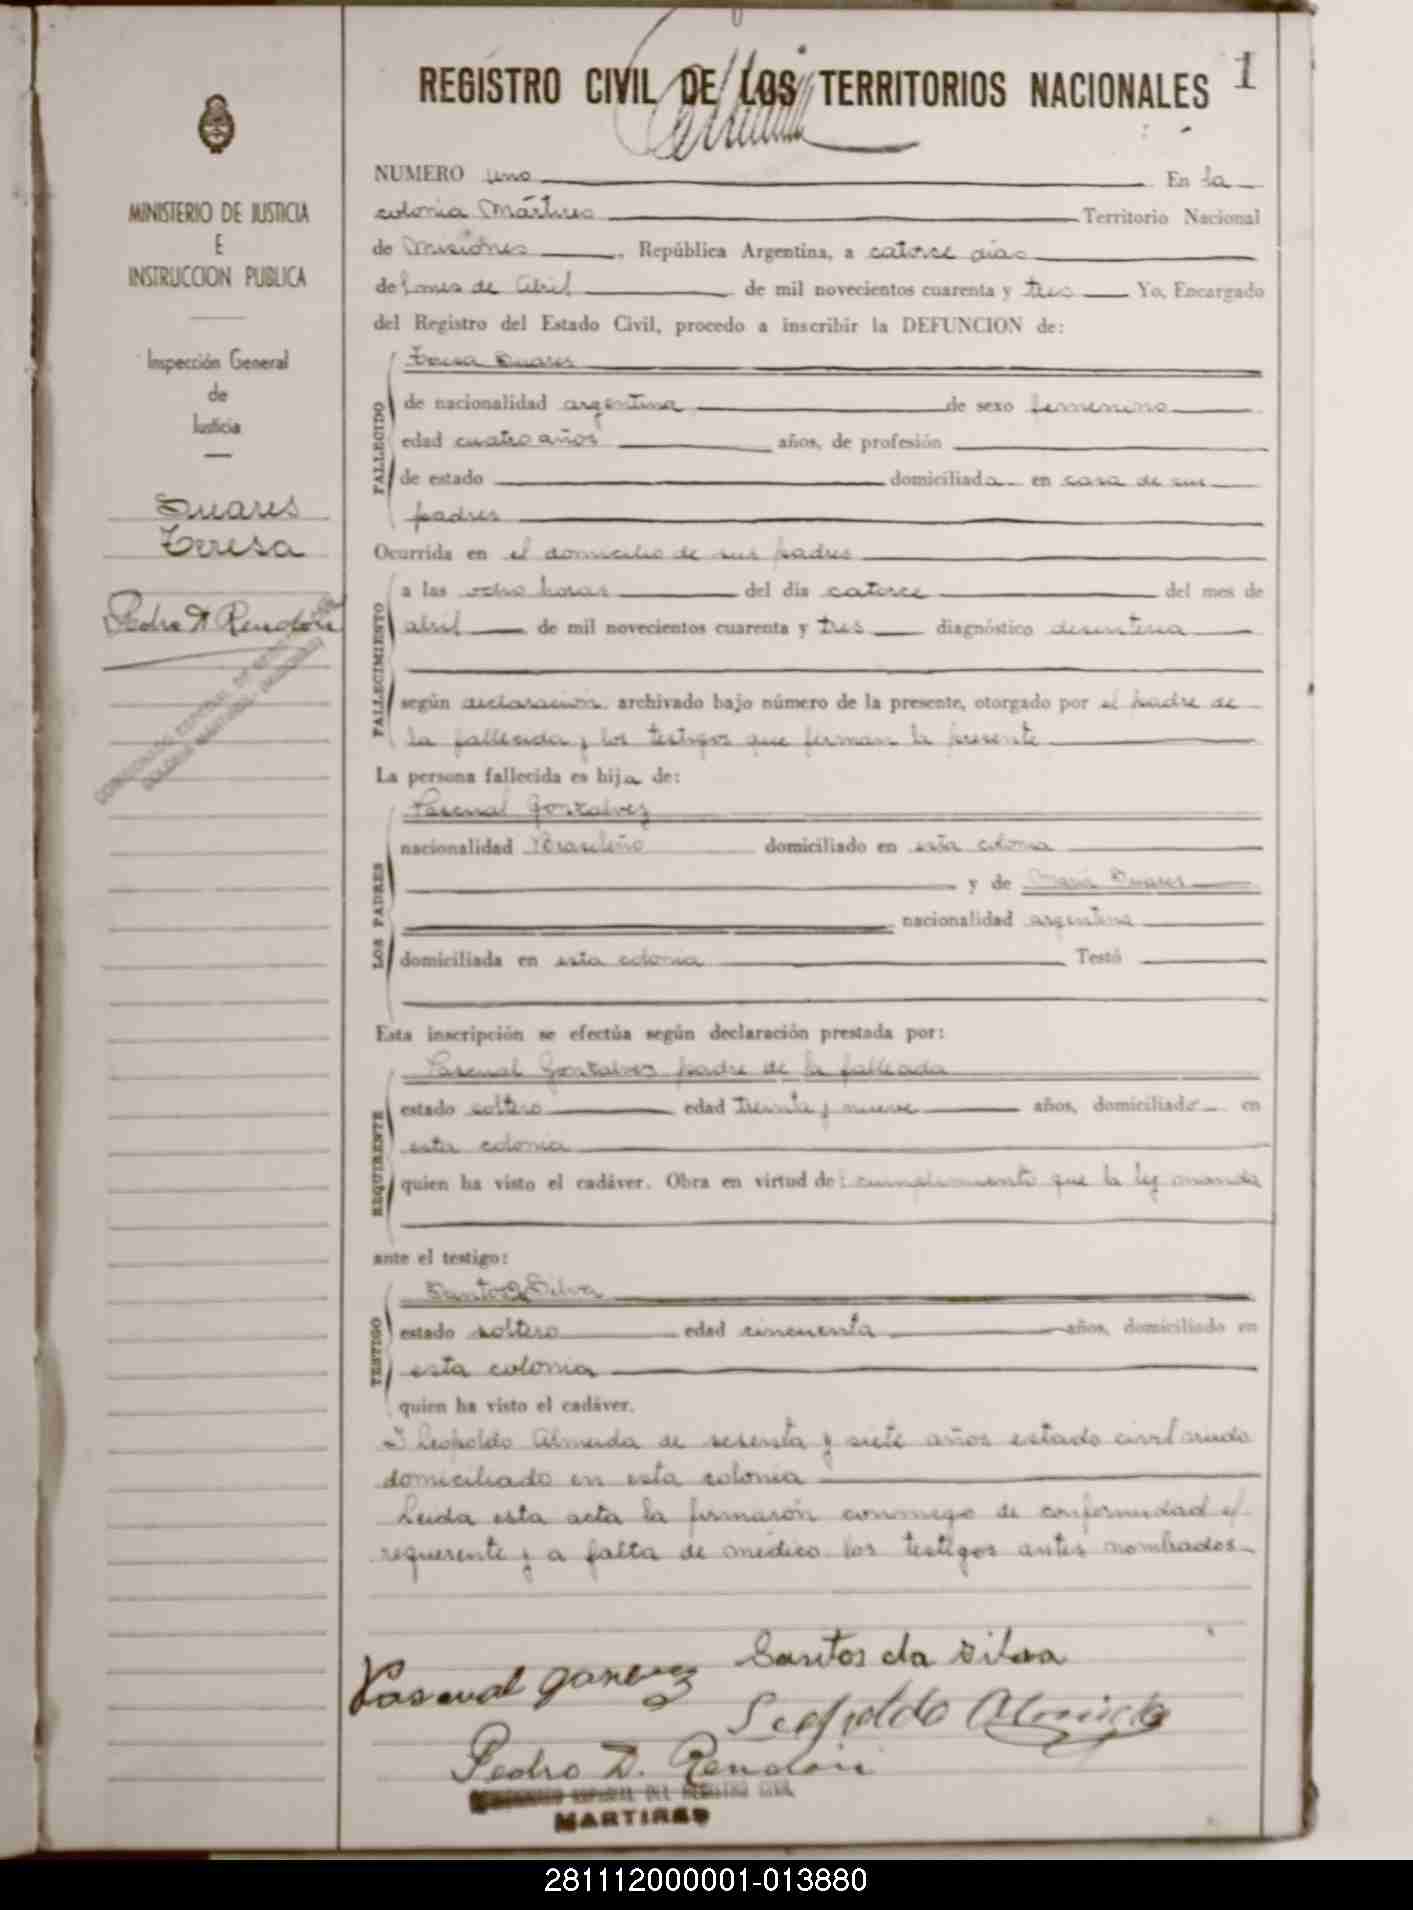 REGISTRO CIVIL DE LOS TERRITORIOS NACIONALES
1
MINISTERIO DE JUSTICIA
E
INSTRUCCION PUBLICA
Inspección General
de
Justicia
Suares
Teresa
Pedro D. Rendón
NUMERO uno En la
colonia Mártires Territorio Nacional
de Misiones, República Argentina, a catorce días
del mes de Abril de mil novecientos cuarenta y tres Yo, Encargado
del Registro del Estado Civil, procedo a inscribir la DEFUNCION de:
FALLECIDO
Teresa Suares
de nacionalidad argentina de sexo femenino
edad cuatro años años, de profesión
de estado domiciliada en casa de sus
padres
Ocurrida en el domicilio de sus padres
FALLECIMIENTO
a las ocho horas del día catorce del mes de
abril de mil novecientos cuarenta y tres diagnóstico desinteria
según declaración, archivado bajo número de la presente, otorgado por el padre de
la fallecida y los testigos que firman la presente
La persona fallecida es hija de:
LOS PADRES
Pascual Gonzalvez
nacionalidad Brasileño domiciliado en esta colonia
y de María Suares
nacionalidad argentina
domiciliada en esta colonia Testó
Esta inscripción se efectúa según declaración prestada por:
REQUIRENTE
Pascual Gonzalves padre de la fallecida
estado soltero edad treinta y nueve años, domiciliado en
esta colonia
quien ha visto el cadáver. Obra en virtud de: cumplimiento que la ley manda
ante el testigo:
TESTIGO
Santos Silva
estado soltero edad cincuenta años, domiciliado en
esta colonia
quien ha visto el cadáver.
Y Leopoldo Almeida de sesenta y siete años estado civil
domiciliado en esta colonia
Leida esta acta la firmarón conmigo de conformidad el
requerente y a falta de médico los testigos antes nombrados
Santos da Silva
Pascual
Leopoldo Almeida
Pedro D. Rendón
ESPECIAL DEL REGISTRO CIVIL
MARTIRES
281112000001-013880